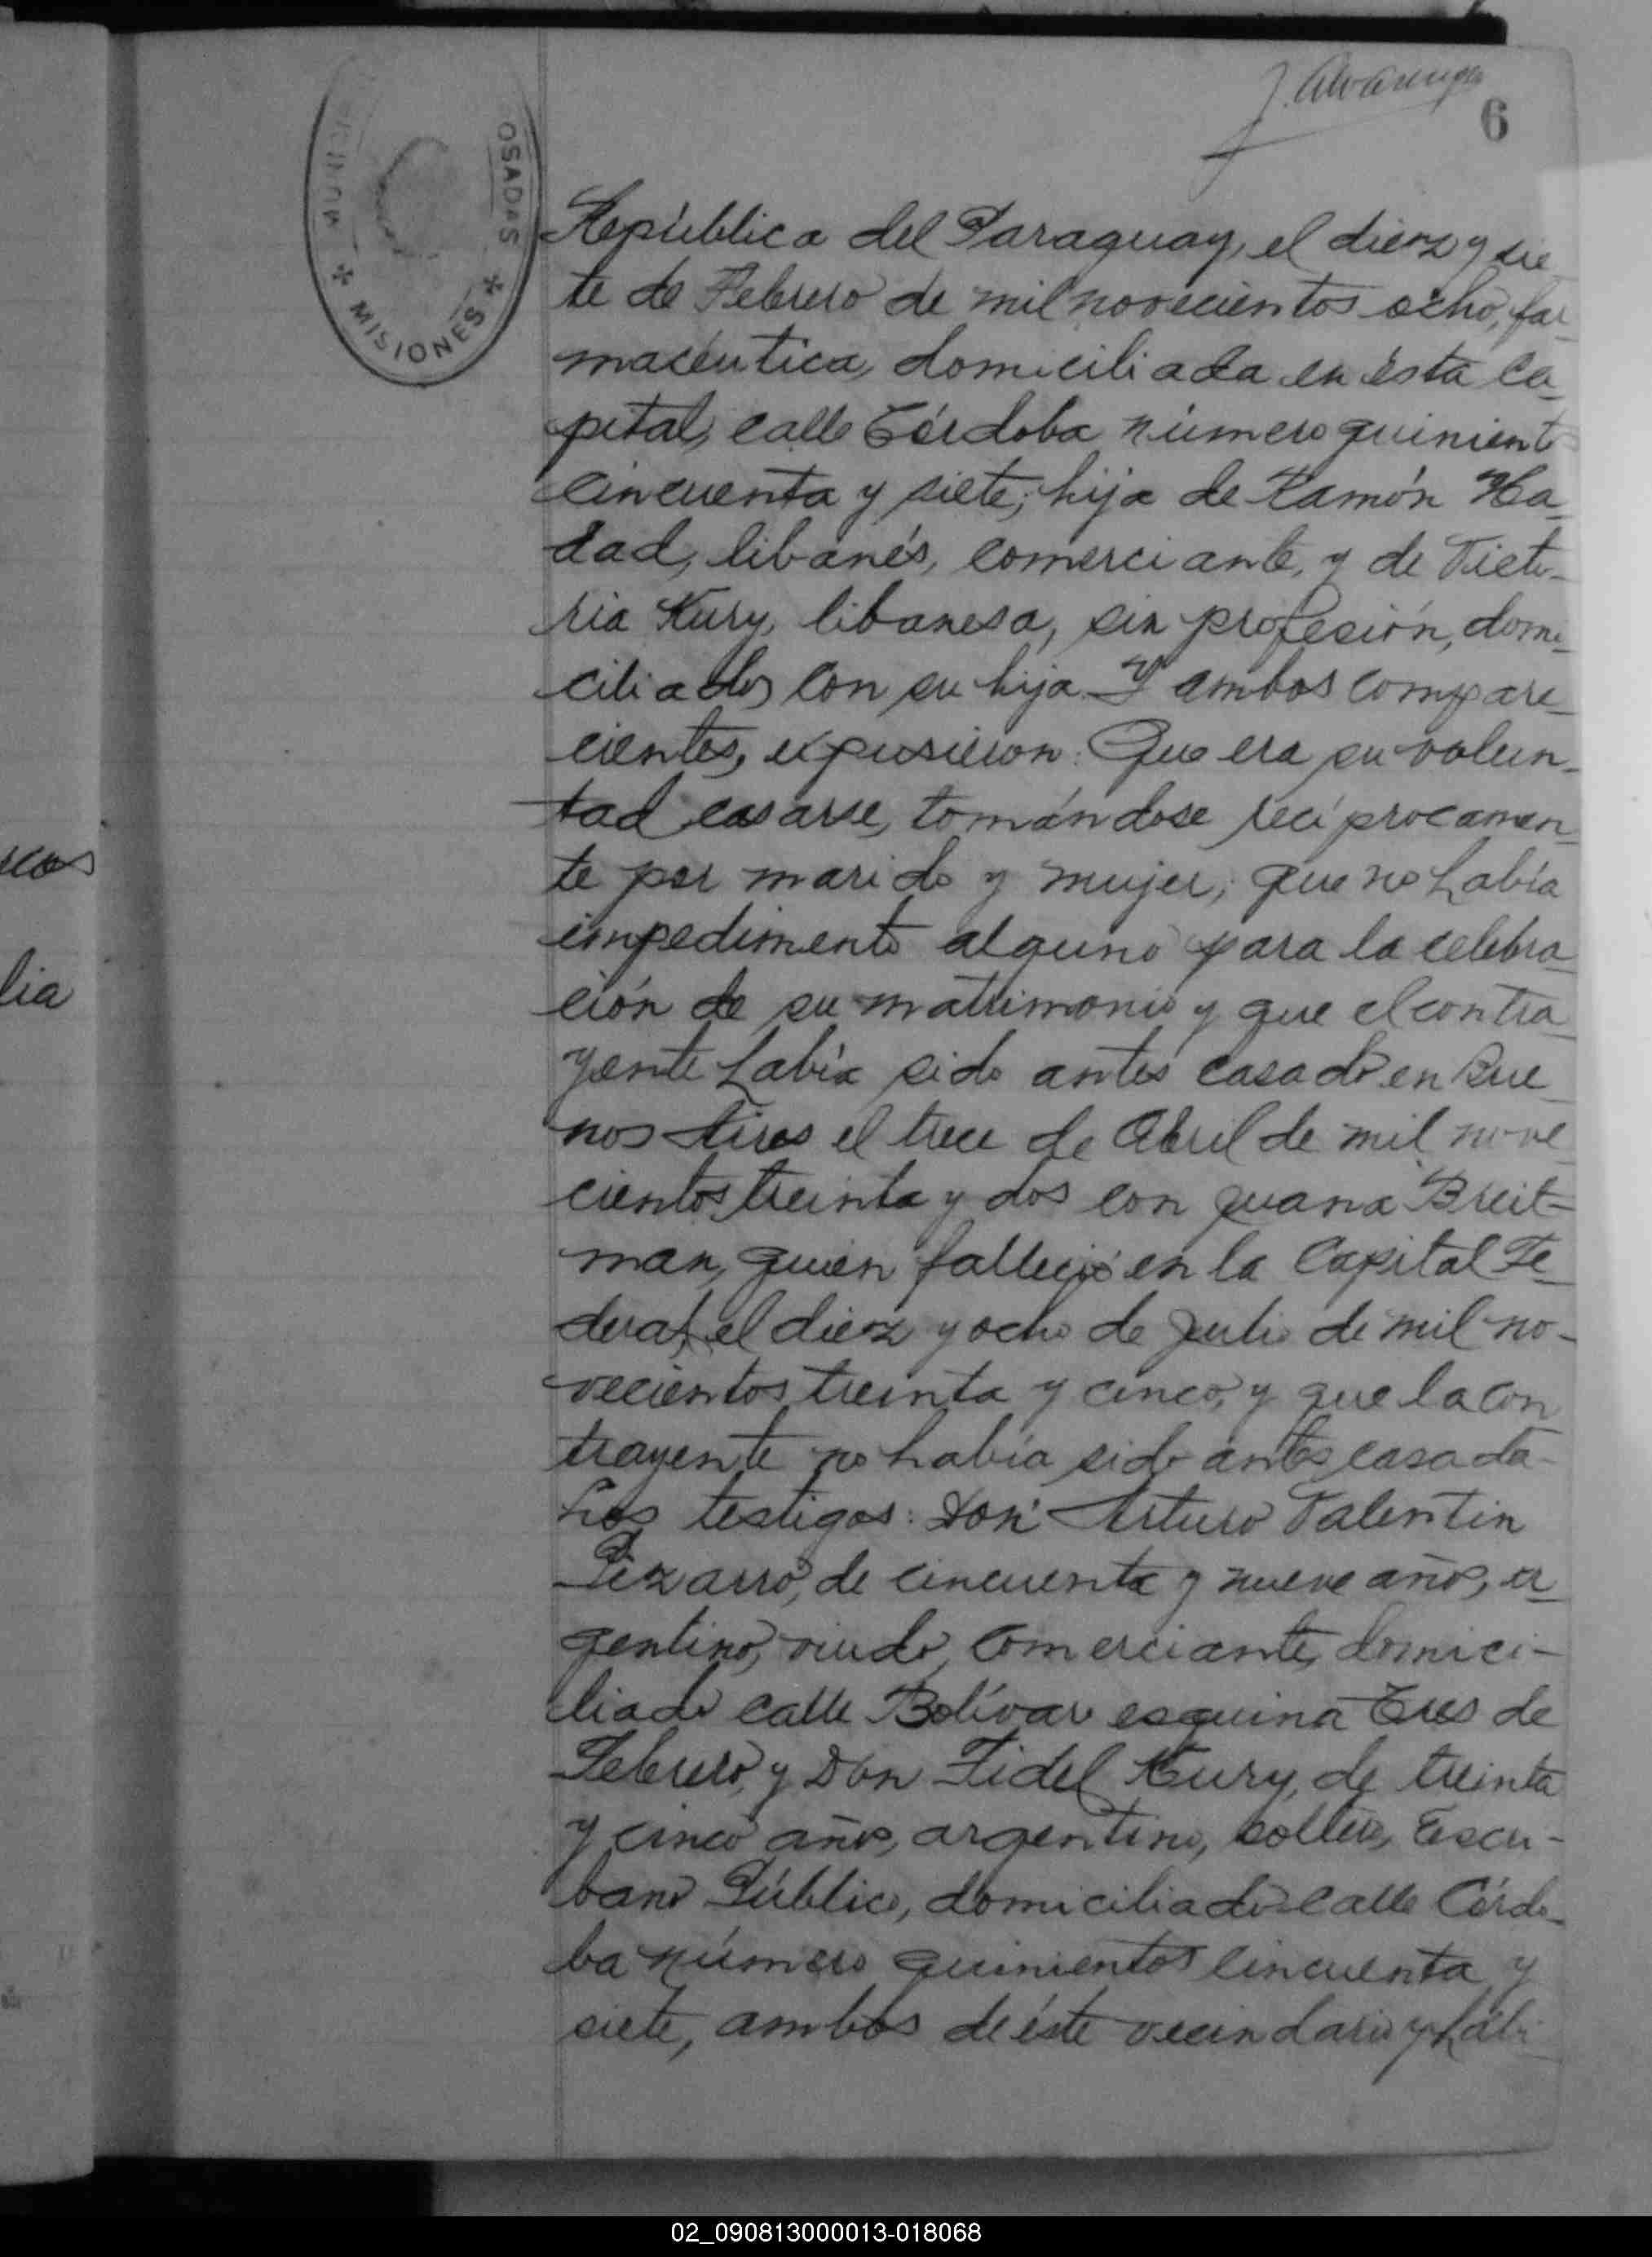 J. Alvarenga
6
OSADAS
MISIONES
República del Paraguay, el diez y sie
te de Febrero de mil novecientos ocho, far
macéutica, domiciliada en ésta ca_
pital, calle Córdoba número quiniento
cincuenta y siete; hija de Ramón Ha_
dad, libanés, comerciante, y de Victo-
ria Kury, libanesa, sin profesión, domi_
ciliados con su hija. Y ambos compare_
cientes, expusieron: Que era su volun_
tad casarse, tomándose recíprocamen_
te por marido y mujer; que no había
impedimento alguno para la celebra_
ción de su matrimonio y que el contra_
yente había sido antes casado en Bue_
nos Aires el trece de Abril de mil nove_
cientos treinta y dos con Juana Breit=
man, quien falleció en la Capital Fe_
deral, el diez y ocho de Julio de mil no-
vecientos treinta y cinco, y que la con
trayente no había sido antes casada-
Los testigos: Don Arturo Valentin
Pizarro, de cincuenta y nueve años, ar
gentino, viudo, comerciante, domici-
liado calle Bolívar esquina Tres de
Febrero, y Don Fidel Kury, de treinta
y cinco años, argentino, soltero, Escri-
bano Público, domiciliado calle Córdo_
ba número quinientos cincuenta y
siete, ambos de éste vecindario y hábi_
lia
02_090813000013-018068